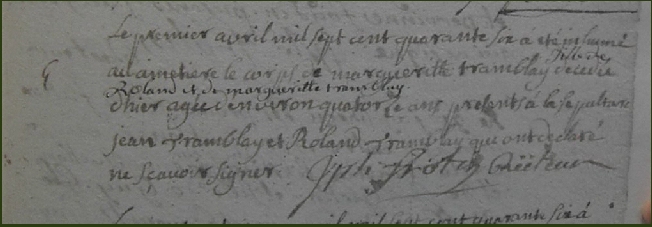 Le premier avril mil sept cent quarante six a été inhumé
au cimetiere le corps de margueritte tramblay decedée
fille de
Roland et de margueritte tramblay
d'hier agée d'environ quatorze ans present à la sepulture
jean tramblay et Roland tramblay qui ont declaré
ne sçavoir signer
avril sept cent quarante six à